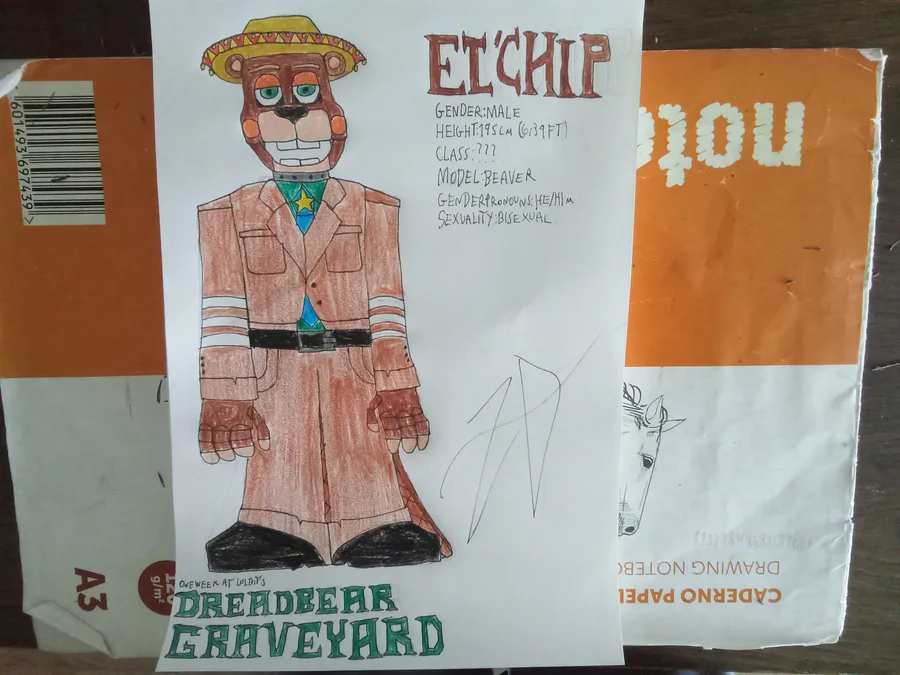 ET'CHIP
GENDER:MALE
HEIGHT:195CM (6'39FT)
CLASS:???
MODEL:BEAVER
GENDERPRONOUNS:HE/HIM
SEXUALITY:BISEXUAL
ONE WEEK AT LOLBIT'S
DREADBEAR
GRAVEYARD
A3
g/m²
DRAWING NOTEBO
CADERNO PAPEL